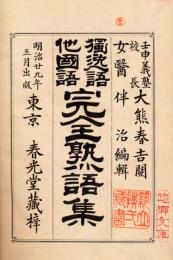 壬申義塾
校長 大熊春吉閲
女醫 伴 治編輯
獨逸語
他國語
完全熟語集
明治廿九年
五月出版
東京 春光堂藏梓